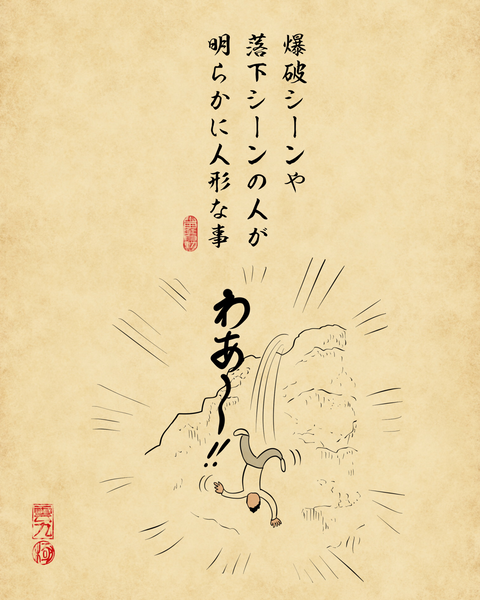 爆破シーンや
落下シーンの人が
明らかに人形な事
わあ〜!!